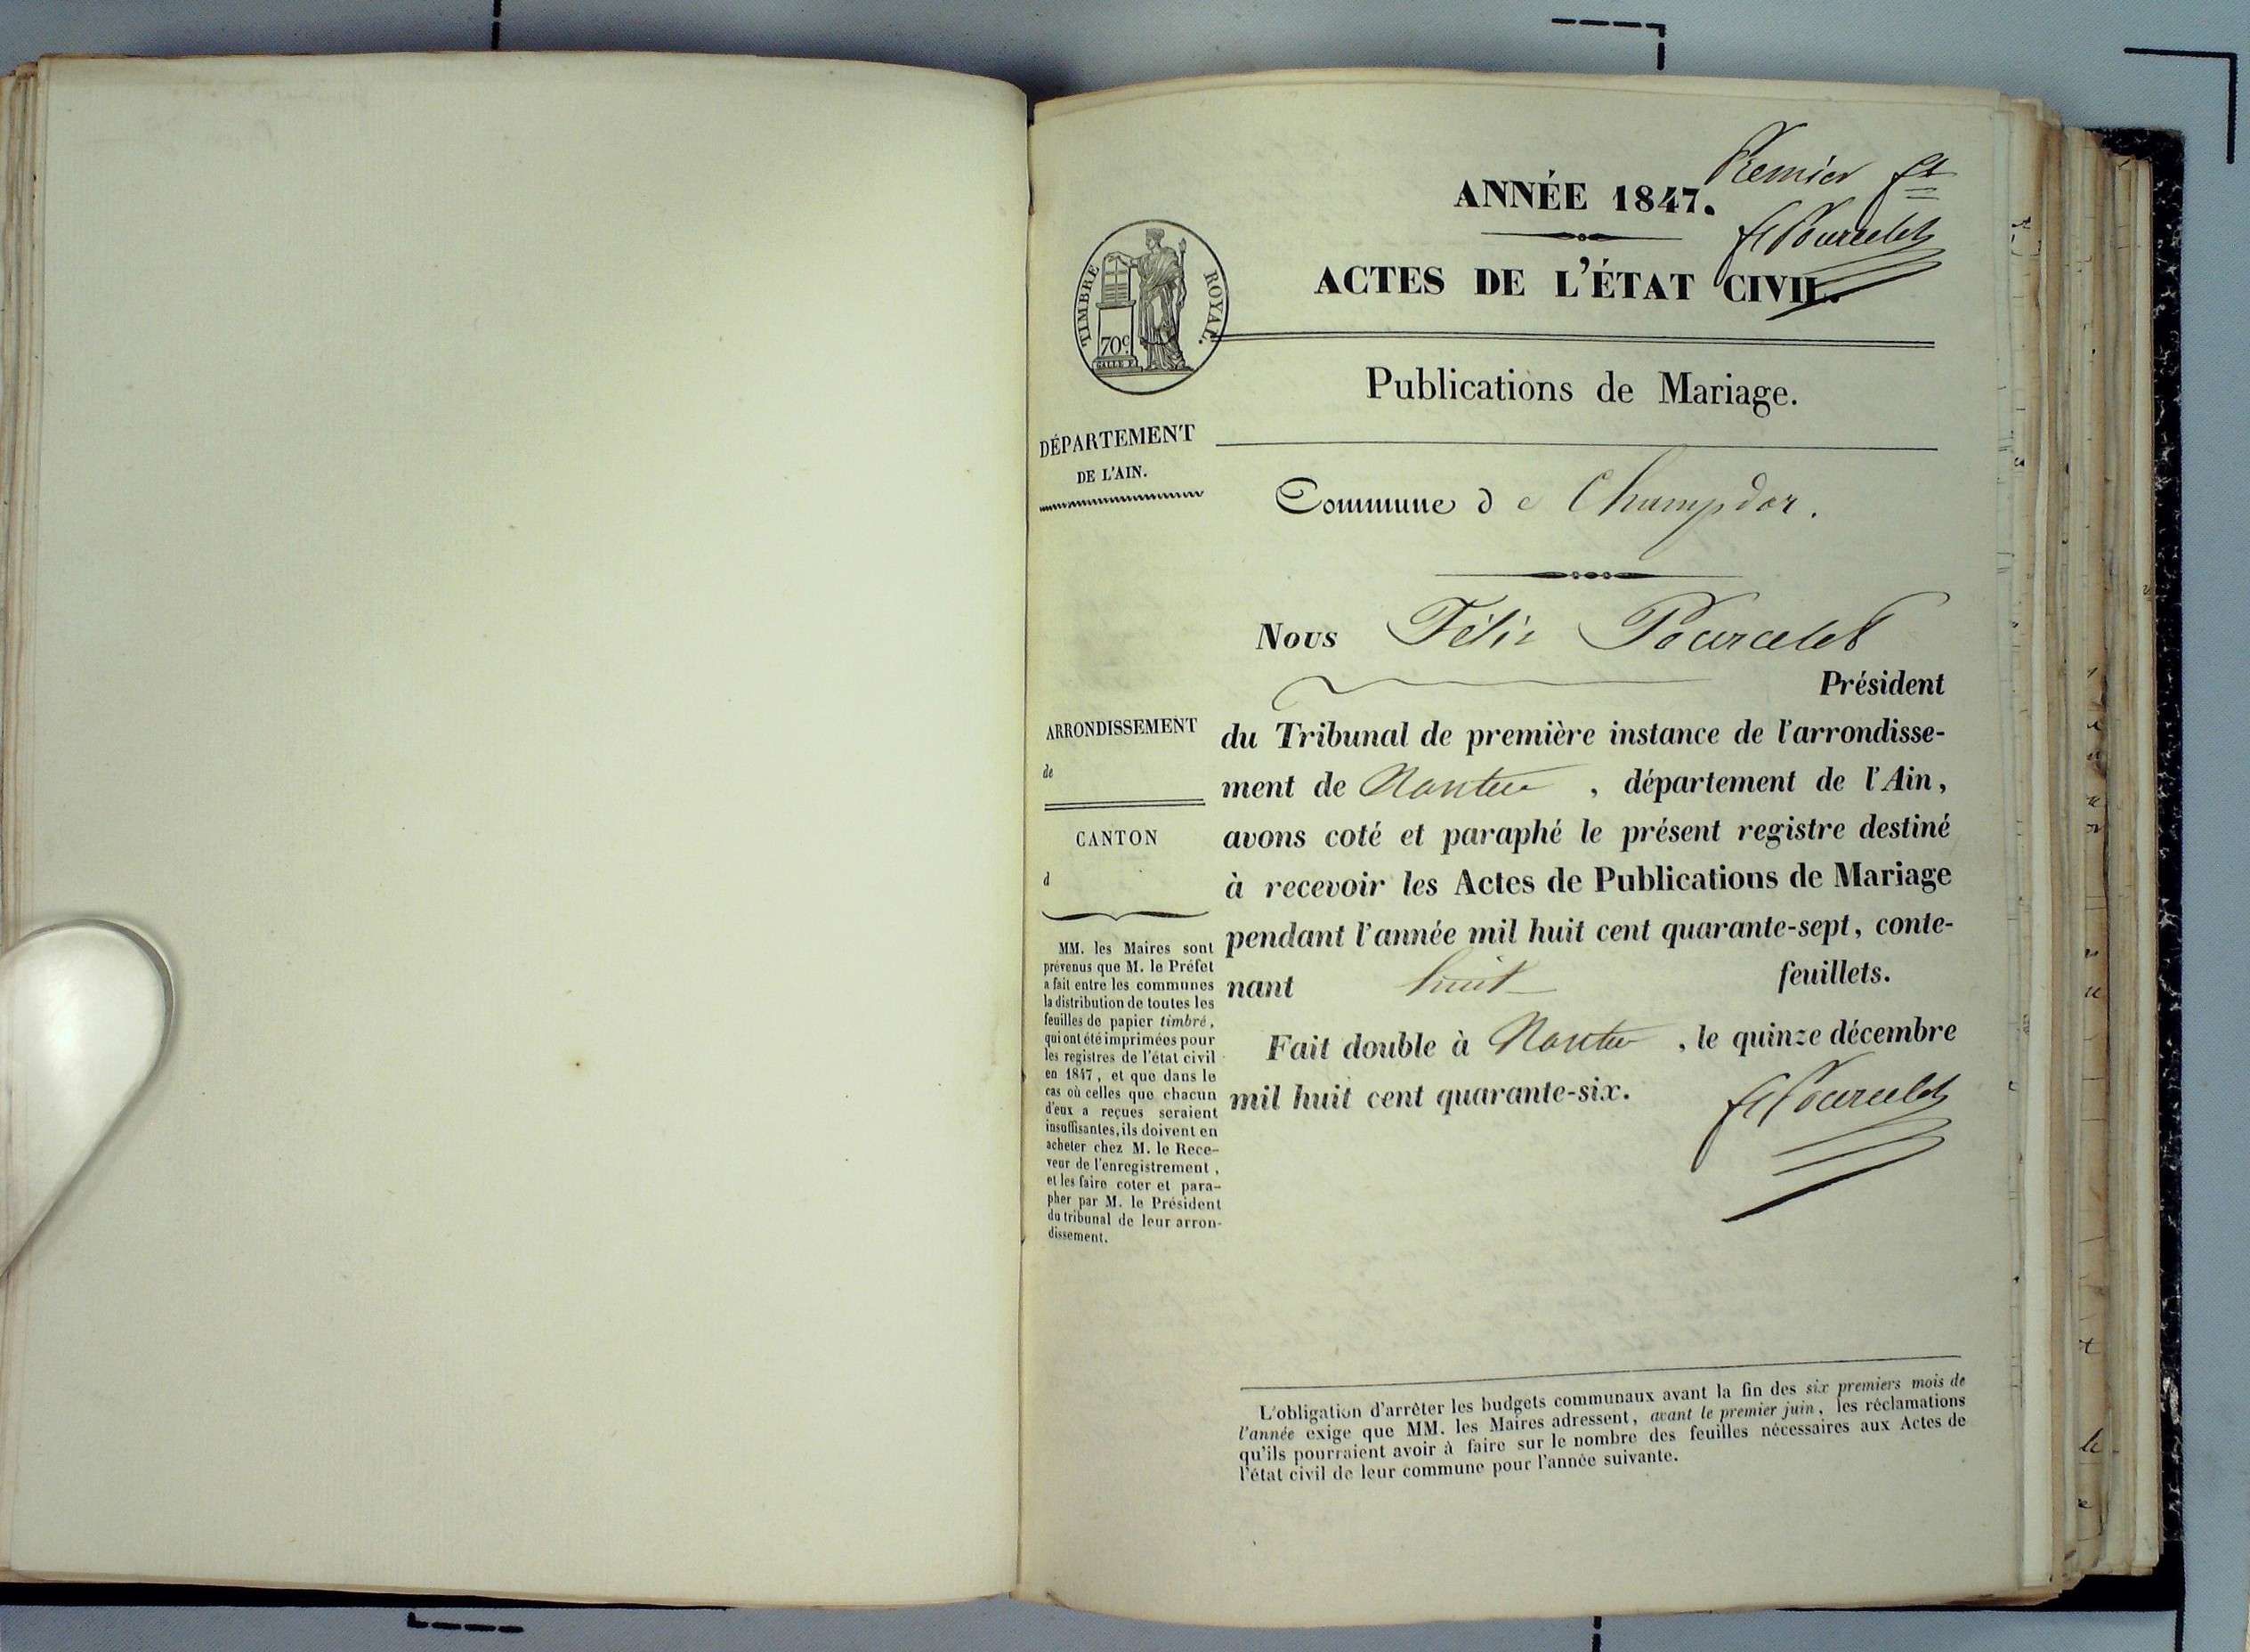 Premier ft
ANNÉE 1847.
F Pourcelet
ACTES DE L'ÉTAT CIVIL.
TIMBRE ROYAL.
70c
Publications de Mariage.
DÉPARTEMENT
DE L'AIN.
Commune de Champdor.
Nous Félix Pourcelet
Président
du Tribunal de première instance de l'arrondisse-
ment de Nantua, département de l'Ain,
avons coté et paraphé le présent registre destiné
à recevoir les Actes de Publications de Mariage
pendant l'année mil huit cent quarante-sept, conte-
nant huit feuillets.
Fait double à Nantua, le quinze décembre
mil huit cent quarante-six.
F Pourcelet
ARRONDISSEMENT
de
CANTON
d
MM. les Maires sont
prévenus que M. le Préfet
a fait entre les communes
la distribution de toutes les
feuilles de papier timbré,
qui ont été imprimées pour
les registres de l'état civil
en 1847, et que dans le
cas où celles que chacun
d'eux a reçues seraient
insuffisantes, ils doivent en
acheter chez M. le Rece-
veur de l'enregistrement,
et les faire coter et para-
pher par M. le Président
du tribunal de leur arron-
dissement.
L'obligation d'arrêter les budgets communaux avant la fin des six premiers mois de
l'année exige que MM. les Maires adressent, avant le premier juin, les réclamations
qu'ils pourraient avoir à faire sur le nombre des feuilles nécessaires aux Actes de
l'état civil de leur commune pour l'année suivante.